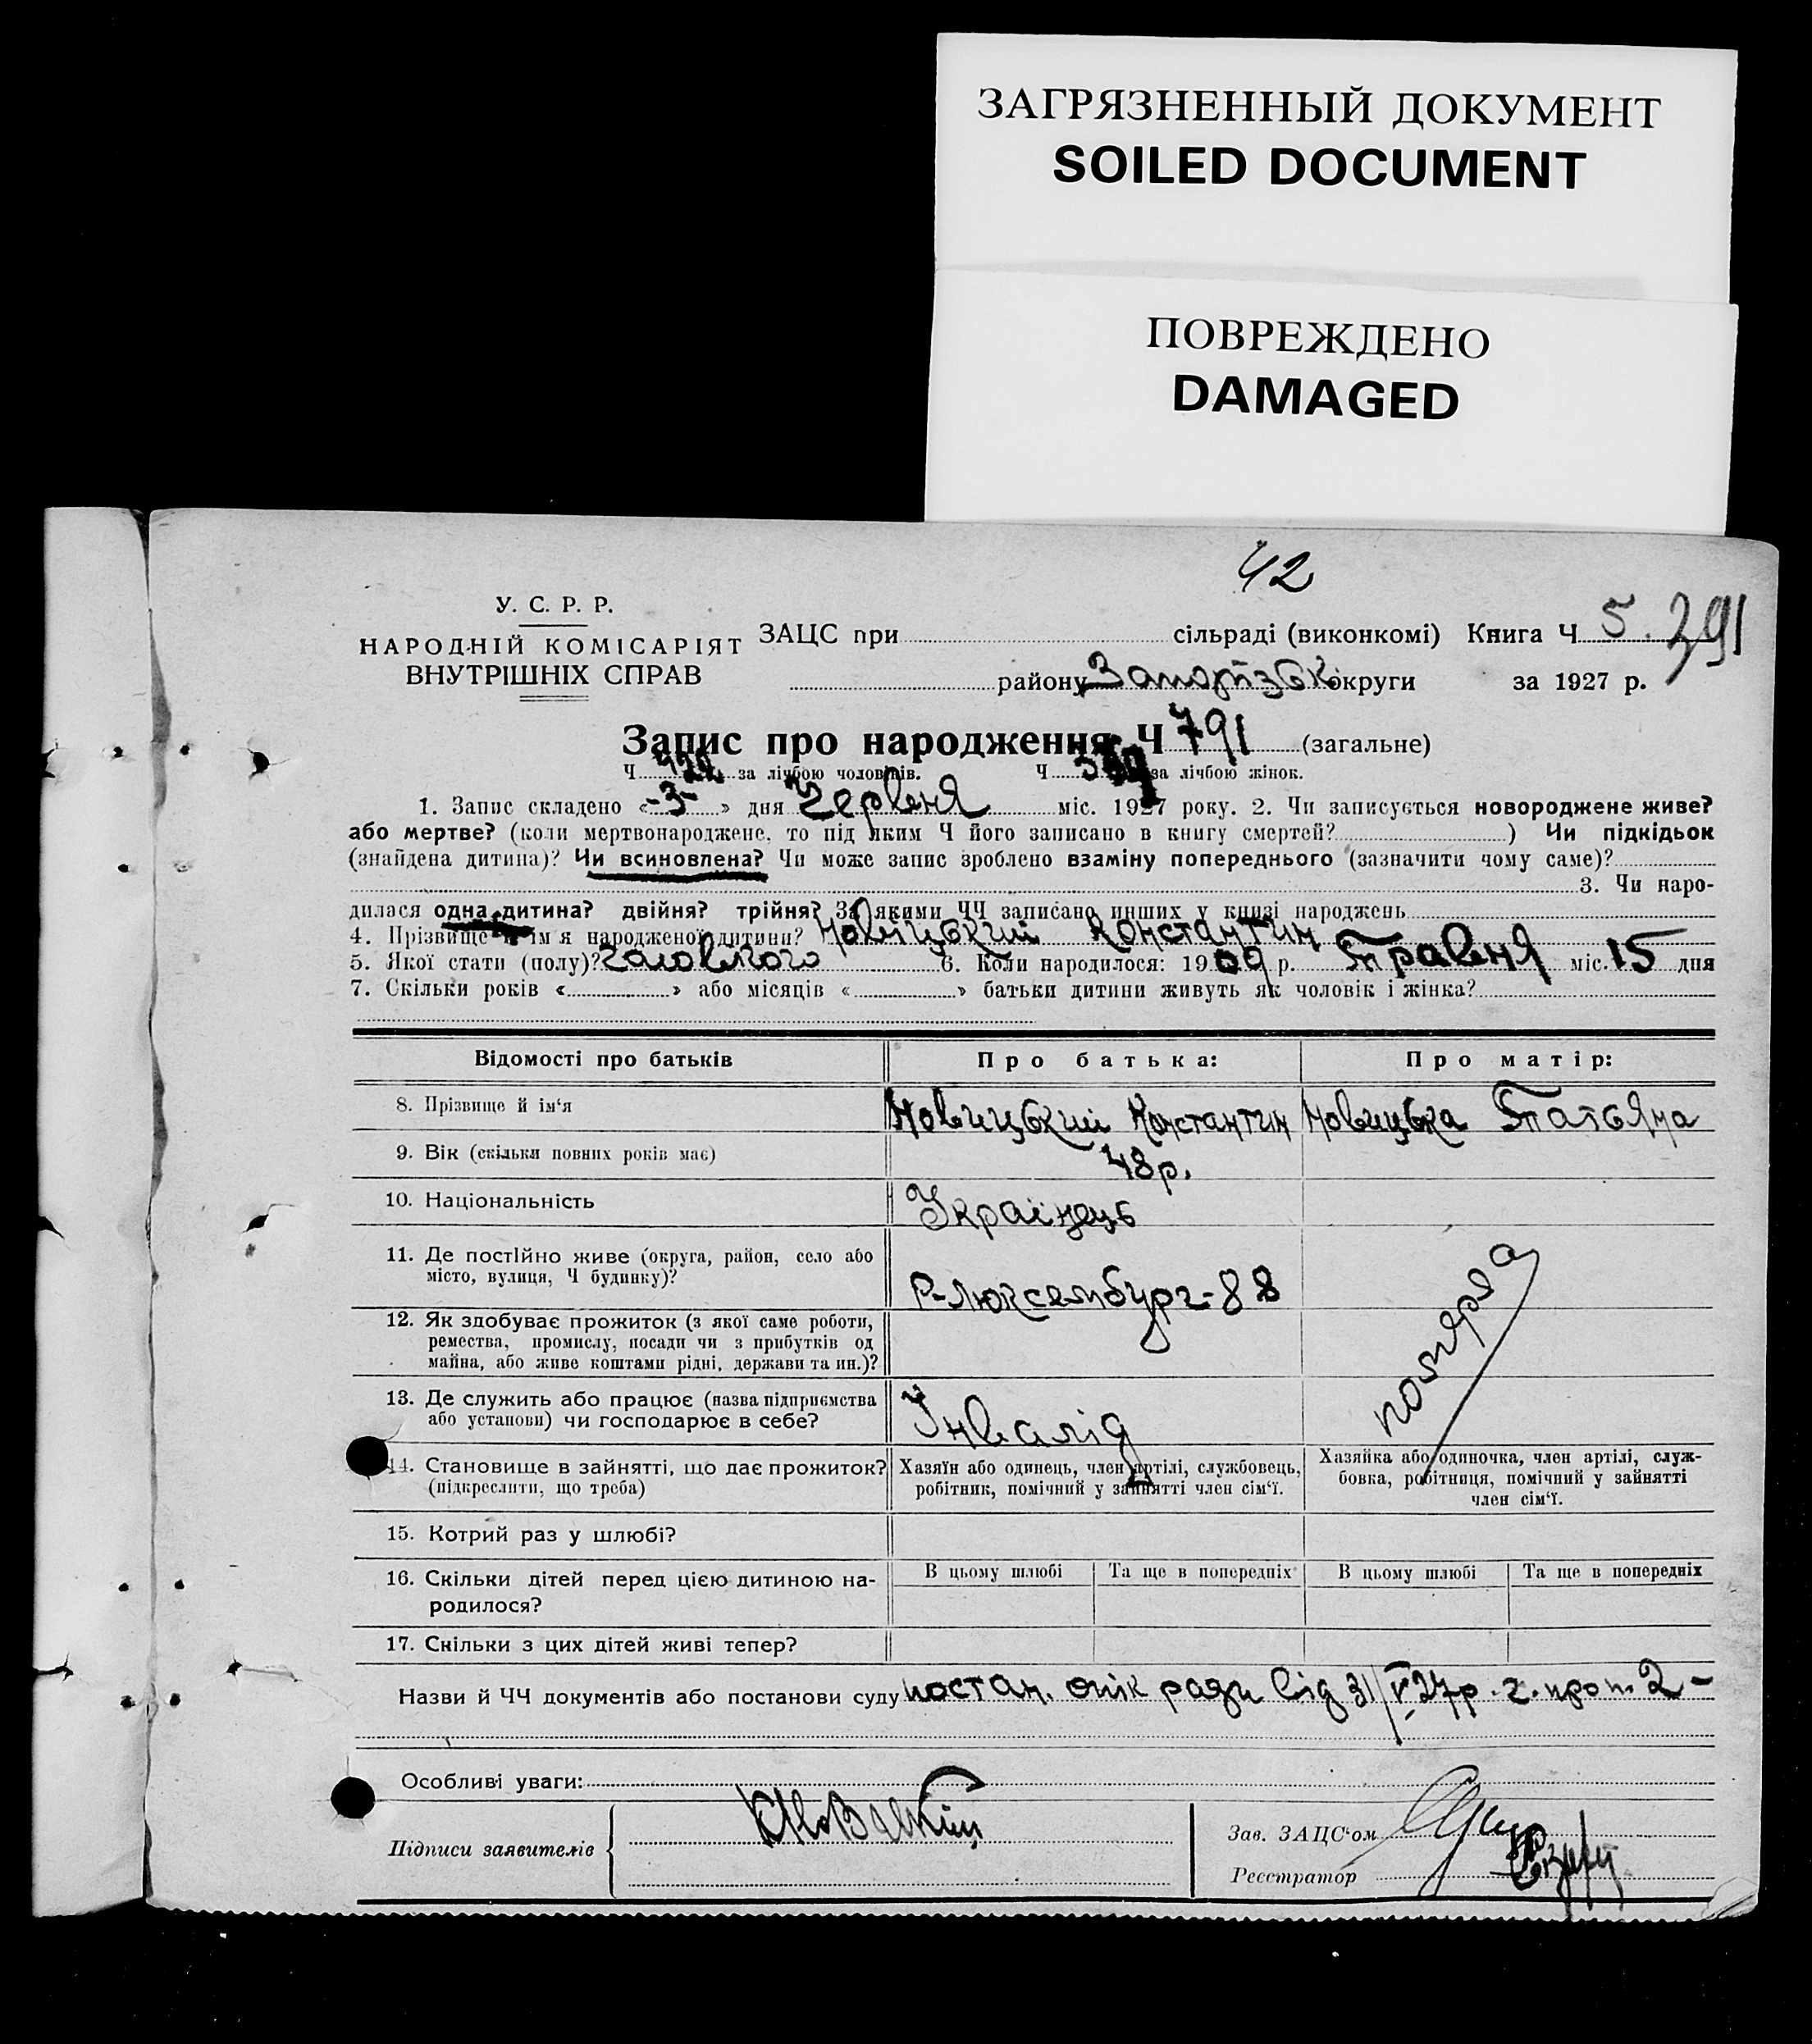 ЗАГРЯЗНЕННЫЙ ДОКУМЕНТ
SOILED DOCUMENT
ПОВРЕЖДЕНО
DAMAGED
42
У. С. Р. Р.
НАРОДНІЙ КОМІСАРІЯТ
ВНУТРІШНІХ СПРАВ
ЗАЦС при сільраді (виконкомі) Книга Ч 5. 291
району Запорізьк округи за 1927 р.
Запис про народження Ч 791 (загальне)
Ч 422 за лічбою чоловіків. Ч 369 за лічбою жінок.
1. Запис складено «-3-» дня Червня міс. 1927 року. 2. Чи записується новороджене живе?
або мертве? (коли мертвонароджене, то під яким Ч його записано в книгу смертей? ) Чи підкідьок
(знайдена дитина)? Чи всиновлена? Чи може запис зроблено взаміну попереднього (зазначити чому саме)?
3. Чи наро-
дилася одна дитина? двійня? трійня? За якими ЧЧ записано инших у книзі народжень
4. Прізвище й ім'я народженої дитини? Новіцький Константин
5. Якої стати (полу)? чоловічого 6. Коли народилося: 1909 р. Травня міс. 15 дня
7. Скільки років « » або місяців « » батьки дитини живуть як чоловік і жінка?
Відомості про батьків Про батька: Про матір:
8. Прізвище й ім'я Новицький Константин Новицька Татьяна
9. Вік (скільки повних років має) 48р.
10. Національність Українець
11. Де постійно живе (округа, район, село або
місто, вулиця, Ч будинку)? Р-Люксембург-88
померла
12. Як здобуває прожиток (з якої саме роботи,
ремества, промислу, посади чи з прибутків од
майна, або живе коштами рідні, держави та ин.)?
13. Де служить або працює (назва підприємства
або установи) чи господарює в себе? Інвалід
14. Становище в зайнятті, що дає прожиток?
(підкреслити, що треба)
Хазяїн або одинець, член артілі, службовець,
робітник, помічний у зайнятті член сім'ї.
Хазяйка або одиночка, член артілі, служ-
бовка, робітниця, помічний у зайнятті
член сім'ї.
15. Котрий раз у шлюбі?
16. Скільки дітей перед цією дитиною на-
родилося?
В цьому шлюбі Та ще в попередніх В цьому шлюбі Та ще в попередніх
17. Скільки з цих дітей живі тепер?
Назви й ЧЧ документів або постанови суду постан. опік ради від 31/V 27р. ч. прот 2-
Особливі уваги:
Підписи заявителів
Зав. ЗАЦС'ом
Реєстратор